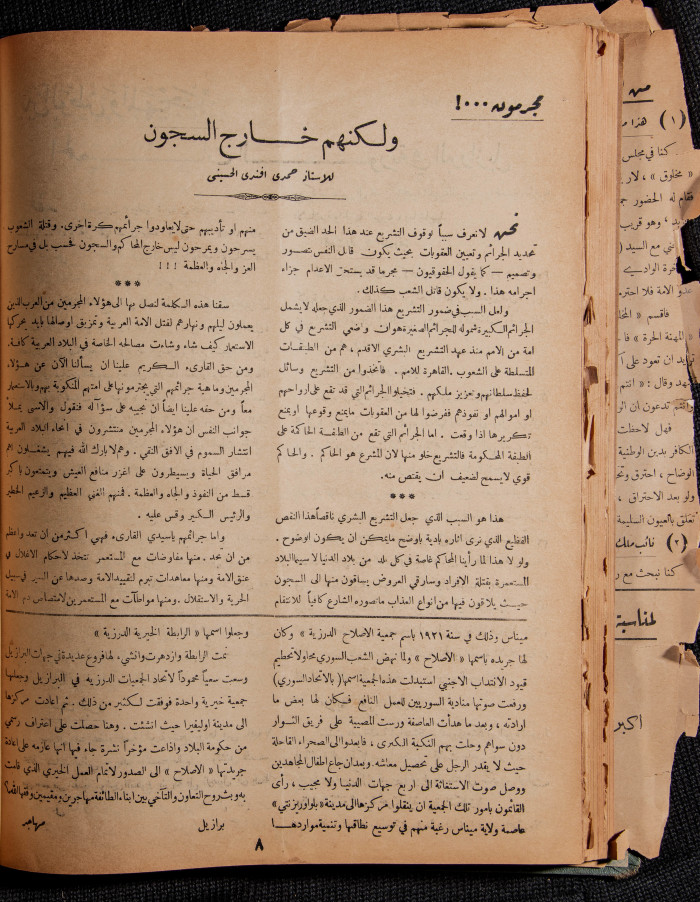 مجرمون ٠٠٠!
ولكنهم خارج السجون
للاستاذ حمدي افندي الحسيني
نحن لانعرف سبباً لوقوف التشريع عند هذا الحد الضيق من
تحديد الجرائم وتعيين العقوبات بحيث يكون قاتل النفس بتصور
وتصميم – كما يقول الحقوقيون – مجرما قد يستحق الاعدام جزاء
اجرامه هذا . ولا يكون قاتل الشعب كذلك .
ولعل السبب في ضمور التشريع هذا الضمور الذي جعله لايشمل
الجرائم الكبيرة شموله للجرائم الصغيرة هوان واضعي التشريع في كل
امة من الامم منذ عهد التشريع البشري الاقدم ، هم من الطبقات
المتسلطة على الشعوب . القاهرة للامم . فاتخذوا من التشريع وسائل
لحفظ سلطانهم وتعزيز ملكهم . فتخيلوا الجرائم التي قد تقع على ارواحهم
او اموالهم او نفوذهم ففرضوا لها من العقوبات مايمنع وقوعها اويمنع
تكريرها اذا وقعت . اما الجرائم التي تقع من الطبقة الحاكمة على
الطبقة المحكومة فالتشريع خلو منها لان المشرع هو الحاكم . والحاكم
قوي لايسمح لضعيف ان يقتص منه .
***
هذا هو السبب الذي جعل التشريع البشري ناقصا هذا النقص
الفظيع الذي نرى اثاره بادية باوضح مايمكن ان يكون الوضوح .
ولو لا هذا لما رأينا المحاكم غاصة في كل بلد من بلاد الدنيا لاسيما البلاد
المستعمرة بقتلة الافراد وسارقي العروض يساقون منها الى السجون
حيث يلاقون فيها من انواع العذاب ماتصوره الشارع كافياً للانتقام
منهم او تأديبهم حتى لايعاودوا جرائمهم كرة اخرى . وقتلة الشعوب
يسرحون ويمرحون ليس خارج المحاكم والسجون فحسب بل في مسارح
العز والجاه والعظمة !!!
***
سقنا هذه الكلمة لنصل بها الى هؤلاء المجرمين من العرب الذين
يعملون ليلهم ونهارهم لقتل الامة العربية وتمزيق اوصالها بأيد يحركها
الاستعمار كيف شاء وشاءت مصالحه الخاصة في البلاد العربية كافة .
ومن حق القارىء الكريم علينا ان يسألنا الآن عن هؤلاء
المجرمين وماهية جرائمهم التي يجترمونها على امتهم المنكوبة بهم وبالاستعمار
معاً ومن حقه علينا ايضاً ان نجيبه على سؤاله فنقول والاسى يملأ
جوانب النفس ان هؤلاء المجرمين منتشرون في انحاء البلاد العربية
انتشار السموم في الافق النقي . وهم لا بارك الله فيهم يشغلون اهم
مرافق الحياة ويسيطرون على اغزر منافع العيش ويتمتعون باكبر
قسط من النفوذ والجاه والعظمة . فمنهم الغني العظيم والزعيم الخطير
والرئيس الكبير وقس عليه .
واما جرائمهم ياسيدي القارىء فهي اكثر من ان تعد واعظم
من ان تحد . منها مفاوضات مع المستعمر تتخذ لاحكام الاغلال في
عنق الامة ومنها معاهدات تبرم لتقييد الامة وصدها عن السير في سبيل
الحرية والاستقلال . ومنها مواطآت مع المستعمرين لامتصاص دم الامة
ميناس وذلك في سنة ١٩٢١ باسم جمعية الاصلاح الدرزية » وكان
لها جريده باسمها « الاصلاح » ولما نهض الشعب السوري محاولا تحطيم
قيود الانتداب الاجنبي استبدلت هذه الجمعية اسمها ( بالاتحاد السوري )
ورفعت صوتها منادية السوريين للعمل النافع فكان لها بعض ما
ارادته ، وبعد ما هدأت العاصفة ورست المصيبة على فريق الثوار
دون سواهم وحلت بهم النكبة الكبرى ، فابعدوا الى الصحراء القاحلة
حيث لا يقدر الرجل على تحصيل معاشه . وبعدان جاع اطفال المجاهدين
ووصل صوت الاستغاثة الى اربع جهات الدنيا ولا مجيب ، رأى
القائمون بامور تلك الجمعية ان ينقلوا مركزها الى مدينة « بلواوريزنتي »
عاصمة ولاية ميناس رغبة منهم في توسيع نطاقها وتنمية مواردهـــا
وجعلوا اسمها « الرابطة الخيرية الدرزية »
نمت الرابطة وازدهرت وانشيء لها فروع عديدة في جهات البرازيل
وسعت سعياً محموداً لاتحاد الجمعيات الدرزيه في البرازيل وجعلها
جمعية خيرية واحدة فوفقت لكثير من ذلك . ثم اعادت مركزها
الى مدينة اوليفيرا حيث انشئت . وهنا حصلت على اعتراف رسمي
من حكومة البلاد واذاعت مؤخراً نشرة جاء فيها انها عازمه على اعادة
جريدتها « الاصلاح » الى الصدور لاتمام العمل الخيري الذي قامت
به وبث روح التعاون والتآخي بين ابناء الطائفة مهاجرين ومقيمين وفقها الله
برازيل
مهاجر
٨
من
( ١ ) هذا
كنا في مجلس
« مخلوق » ،
فقام له الحضور
وهو قريب
مع السيد
عدو الامة فلا
فاقسم «
« المهنة الحرة »
ان تعود على
وقال : « انتم
تدعون ان
فهل لاحظت
الكافر بدين الوطنية
الوضاح ، احترق
ولو بعد الاحتراق ،
تعلق بالعيون السليمة
( ٢ ) نائب ملك
كنا نبحث مع
لمناسبة
اكبر